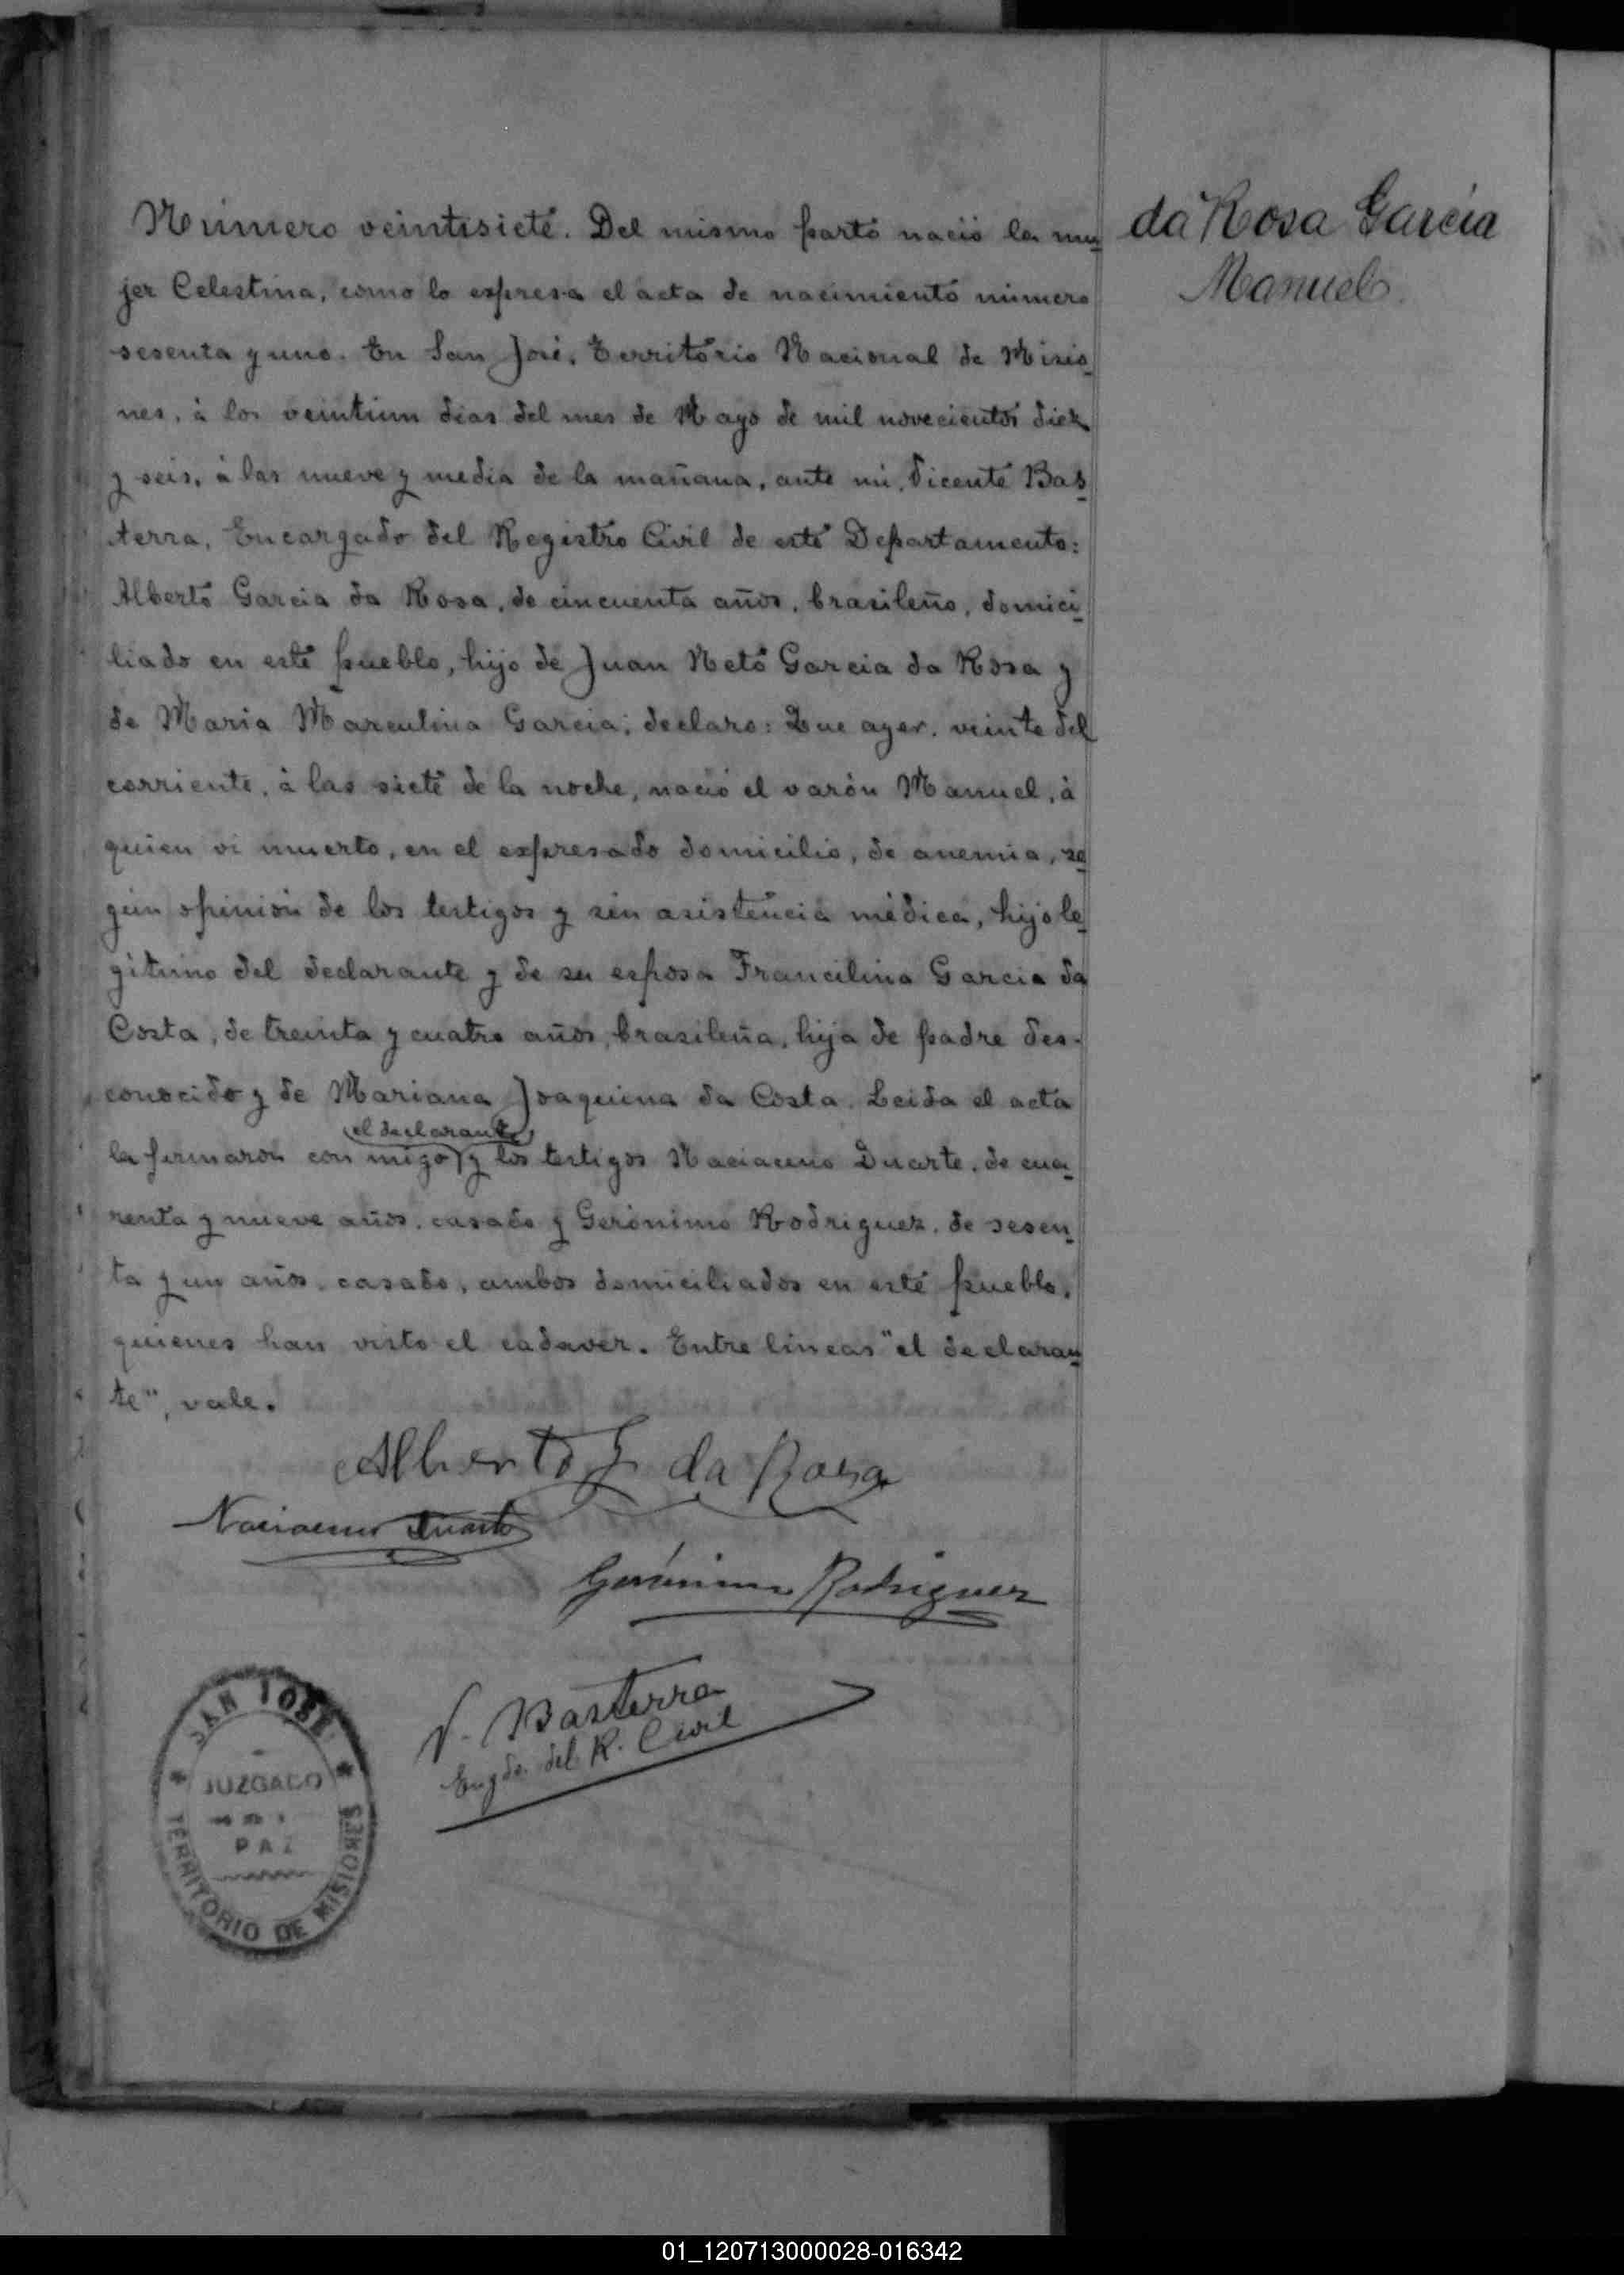 da Rosa Garcia
Manuel.
Número veintisiete. Del mismo parto nació la mu
jer Celestina, como lo expresa el acta de nacimiento número
sesenta y uno. En San José, Territorio Nacional de Misio
nes, à los veintiun dias del mes de Mayo de mil novecientos diez
y seis, à las nueve y media de la mañana, ante mi, Vicente Bas
terra, Encargado del Registro Civil de este Departamento:
Alberto Garcia da Rosa, de cincuenta años, brasileño, domici
liado en este pueblo, hijo de Juan Neto Garcia da Rosa y
de Maria Marculina Garcia; declaro: Que ayer, veinte del
corriente, à las siete de la noche, nació el varòn Manuel, à
quien vi muerto, en el expresado domicilio, de anemia, se
gùn opinión de los testigos y sin asistencia mèdica, hijo le
gitimo del declarante y de su esposa Francilina Garcia da
Costa, de treinta y cuatro años, brasileña, hija de padre des-
conocido y de Mariana Joaquina da Costa. Leida el acta
(el declarante)
la firmaron con migo y los testigos Naciaceno Duarte, de cua
renta y nueve años, casado y Gerònimo Rodriguez, de sesen
ta y un años, casado, ambos domiciliados en este pueblo,
quienes han visto el cadaver. Entre lineas "el declaran
te", vale.
Alberto G da Rosa
Naciaceno Duarte
Gerónimo Rodriguez
V. Basterra
Engdo. del R. Civil
SAN JOSE
JUZGADO
DE
PAZ
TERRITORIO DE MISIONES
01_120713000028-016342